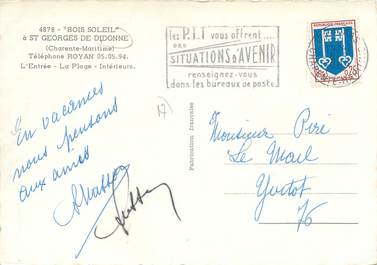 4878 - "BOIS SOLEIL"
à ST GEORGES DE DIDONNE
(Charente-Maritime)
Téléphone ROYAN 05.05.94.
L'Entrée - La Plage - Intérieurs.
les P.T.T vous offrent....
des
SITUATIONS D'AVENIR
renseignez-vous
dans les bureaux de poste
REPUBLIQUE FRANÇAISE
17
En vacances
nous pensons
aux amis
Fabrication française
Monsieur Piré
Le Mail
Yvetot
76